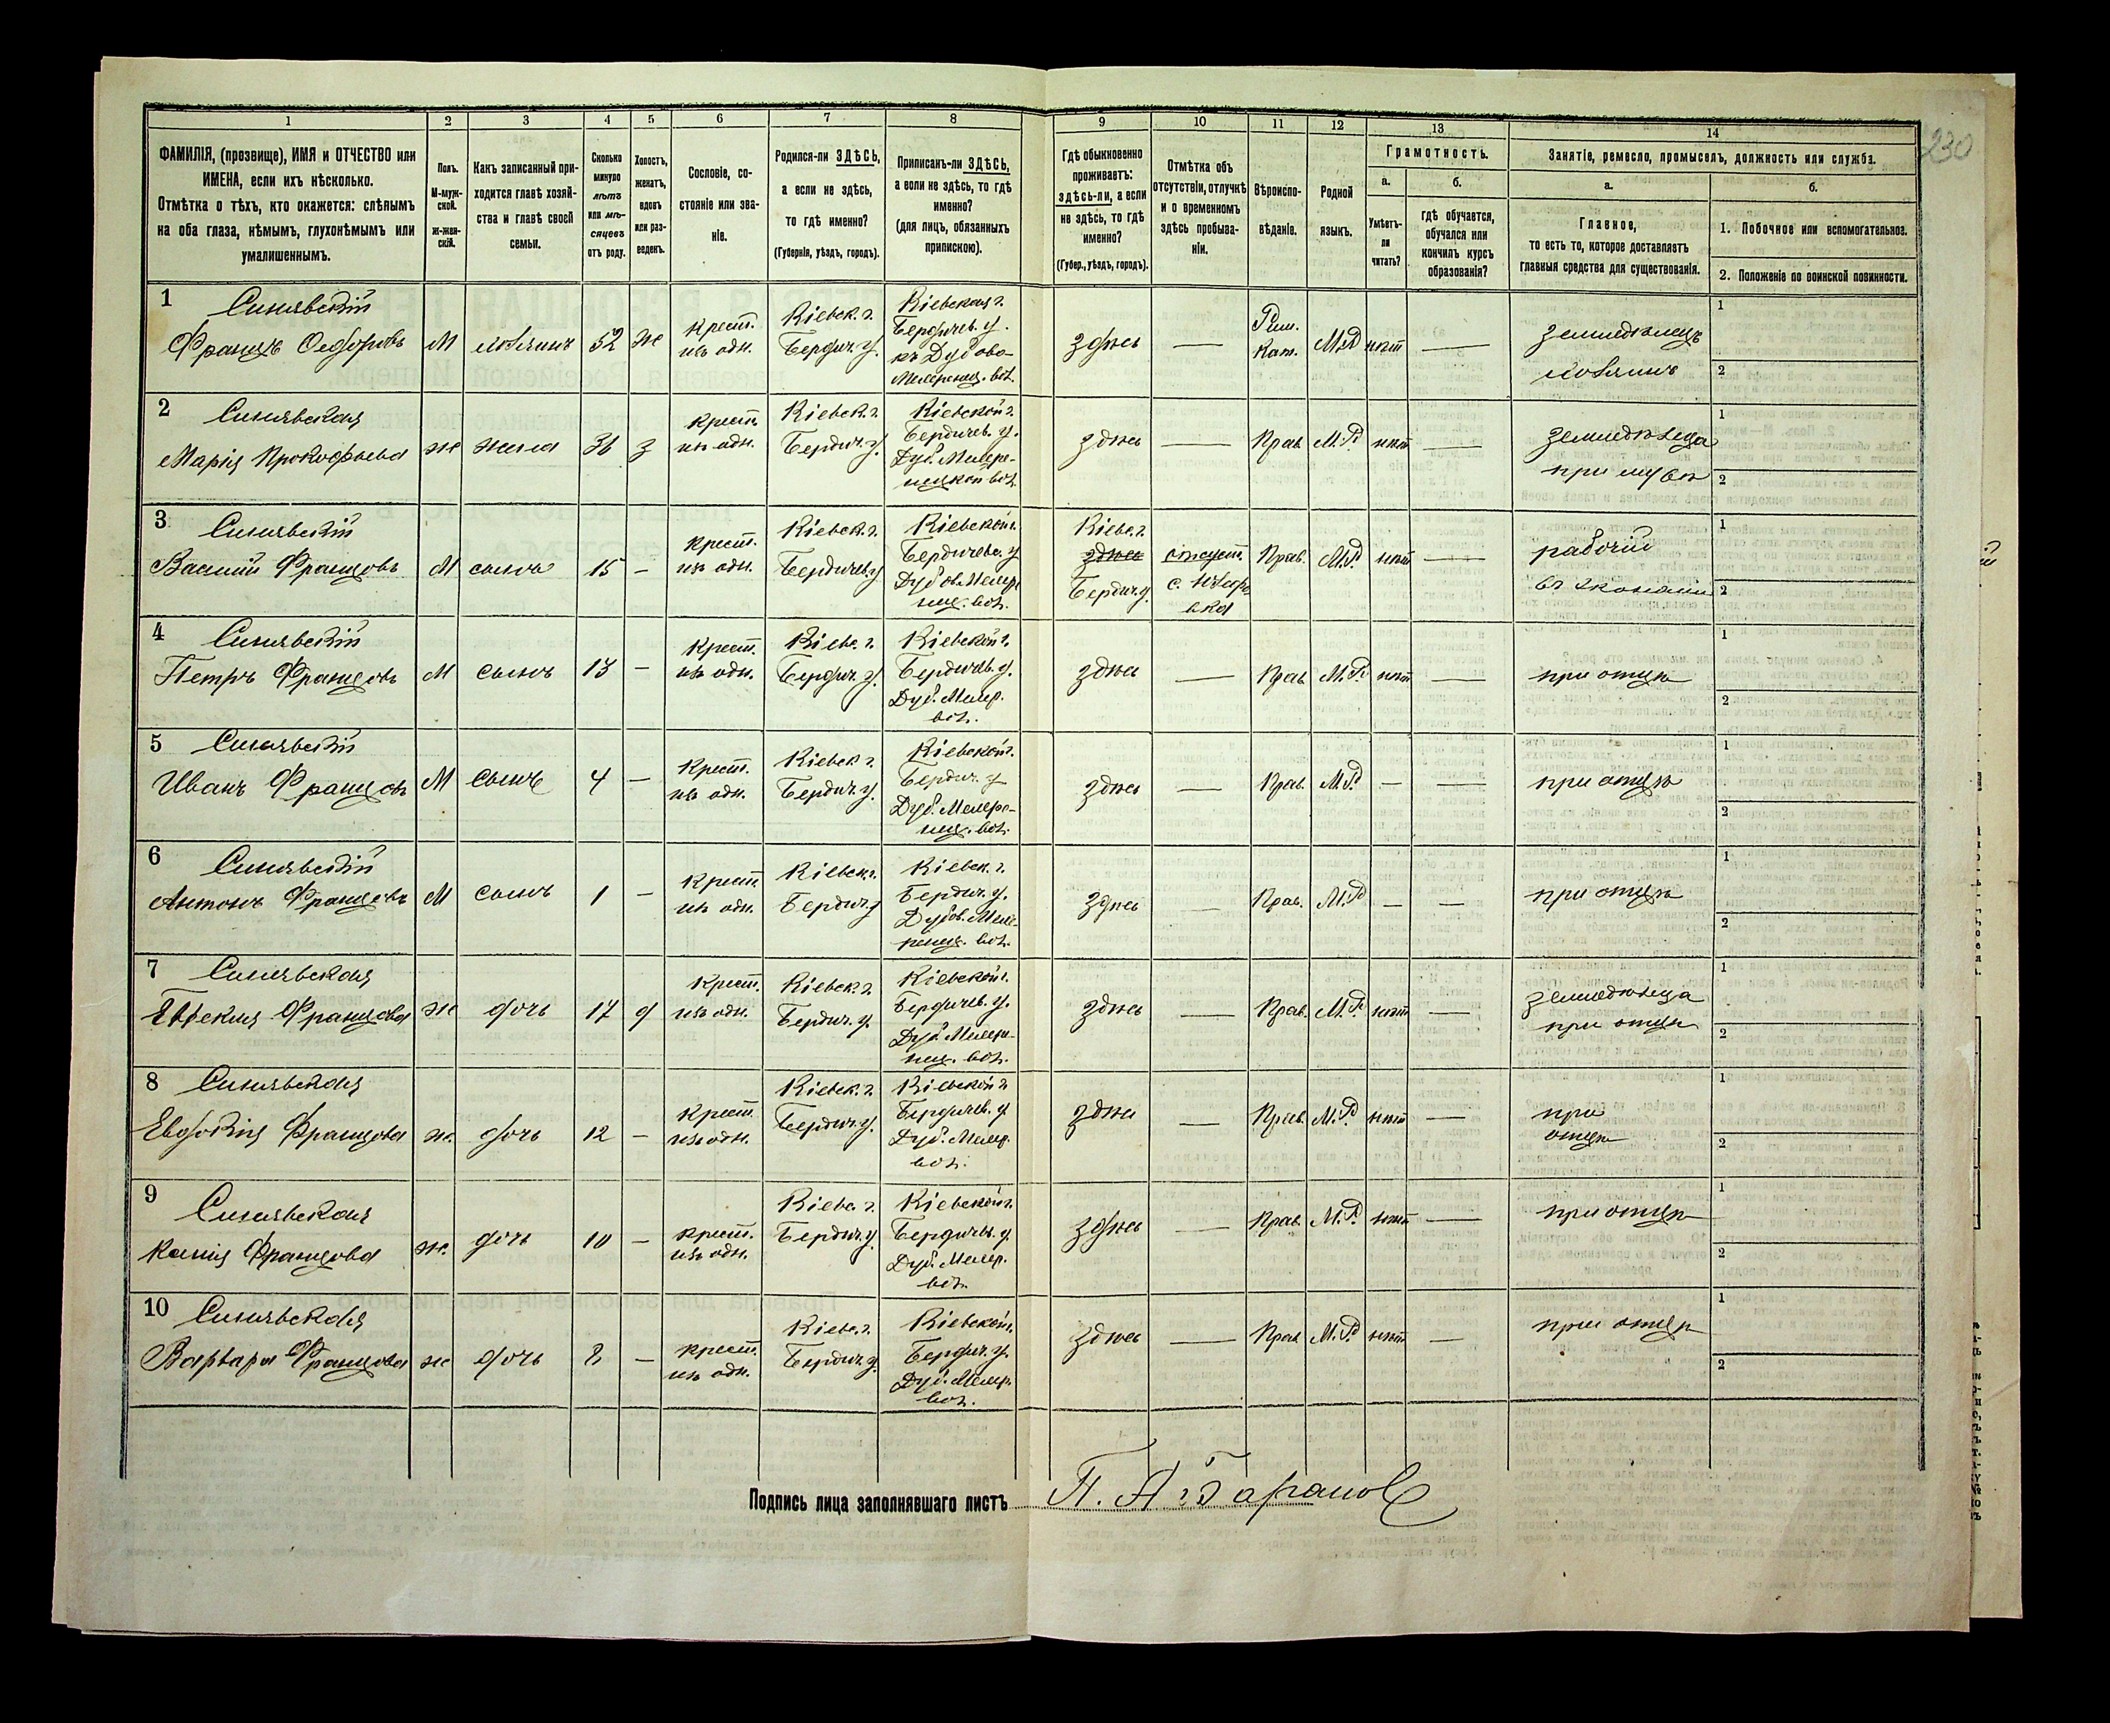 230
1 2 3 4 5 6 7 8 9 10 11 12 13 14
ФАМИЛІЯ, (прозвище), ИМЯ и ОТЧЕСТВО или
ИМЕНА, если ихъ нѣсколько.
Отмѣтка о тѣхъ, кто окажется: слѣпымъ
на оба глаза, нѣмымъ, глухонѣмымъ или
умалишеннымъ.
Полъ.
М-муж-
ской.
ж-жен-
скій.
Какъ записанный при-
ходится главѣ хозяй-
ства и главѣ своей
семьи.
Сколько
минуло
лѣтъ
или мѣ-
сяцевъ
отъ роду.
Холостъ,
женатъ,
вдовъ
или раз-
веденъ.
Сословіе, со-
стояніе или зва-
ніе.
Родился-ли ЗДѢСЬ,
а если не здѣсь,
то гдѣ именно?
(Губернія, уѣздъ, городъ).
Приписанъ-ли ЗДѢСЬ,
а если не здѣсь, то гдѣ
именно?
(для лицъ, обязанныхъ
припискою).
Гдѣ обыкновенно
проживаетъ:
здѣсь-ли, а если
не здѣсь, то гдѣ
именно?
(Губер., уѣздъ, городъ).
Отмѣтка объ
отсутствіи, отлучкѣ
и о временномъ
здѣсь пребыва-
ніи.
Вѣроиспо-
вѣданіе.
Родной
языкъ.
Грамотность.
а.
Умѣетъ-
ли
читать?
б.
гдѣ обучается,
обучался или
кончилъ курсъ
образованія?
Занятіе, ремесло, промыселъ, должность или служба.
а.
Главное,
то есть то, которое доставляетъ
главныя средства для существованія.
б.
1. Побочное или вспомогательное.
2. Положеніе по воинской повинности.
1 Синявскій
Францъ Ѳедоровъ М хозяинъ 52 ж
Крест.
изъ одн.
Кіевск. г.
Бердич. у.
Кіевская г.
Бердичев. у.
къ Дубово-
Мехеринц. вол.
здѣсь —
Рим.
Кат.
М.Р нѣт —
земледѣлецъ
хозяинъ
1
2
2 Синявская
Марія Прокофьева ж жена 36 з
крест.
изъ одн.
Кіевск. г.
Бердич. у.
Кіевской г.
Бердичев. у.
Дуб. Мехере-
нецкой вол.
здѣсь — Прав. М.Р. нѣт —
земледѣлица
при мужѣ
1
2
3 Синявскій
Василій Францовъ М сынъ 15 —
крест.
изъ одн.
Кіевск. г.
Бердичев. у
Кіевской г.
Бердичевс. у
Дубов. Мехер
инц. вол.
Кіевс. г.
здѣсь
Бердич. у.
отсутст.
Прав. М.Р. нѣт —
рабочій
въ экономіи
1
2
4 Синявскій
Петръ Францовъ М сынъ 13 —
Крест.
изъ одн.
Кіевс. г.
Бердич. у.
Кіевской г.
Бердичев. у.
Дуб. Мехер.
вол.
здѣсь — Прав. М.Р. нѣт —
при отцѣ
1
2
5 Синявскій
Иванъ Францовъ М сынъ 4 —
Крест.
изъ одн.
Кіевск г.
Бердич. у.
Кіевской г.
Бердич. у
Дуб. Мехере-
нец. вол.
здѣсь — Прав. М.Р. — —
при отцѣ
1
2
6 Синявскій
Антонъ Францовъ М сынъ 1 —
Крест.
изъ одн.
Кіевск. г.
Бердич. у
Кіевск. г.
Бердич. у.
Дубов. Мехе-
ренц. вол.
здѣсь — Прав. М.Р — —
при отцѣ
1
2
7 Синявская
Ѳекла Францова ж дочь 17 д
Крест.
изъ одн.
Кіевск. г.
Бердич. у.
Кіевской г.
Бердичев. у.
Дуб. Мехери-
нец. вол.
здѣсь — Прав. М.Р. нѣт —
земледѣлица
при отцѣ
1
2
8 Синявская
Евдокія Францова ж. дочь 12 —
Крест.
изъ одн.
Кіевск. г.
Бердич. у.
Кіевской г
Бердичев. у
Дуб. Мехер.
вол.
здѣсь — Прав. М.Р. нѣт —
при
отцѣ
1
2
9 Синявская
Ксенія Францова ж. дочь 10 —
крест.
изъ одн.
Кіевс. г.
Бердич. у.
Кіевской г.
Бердичев. у
Дуб. Мехер.
вол.
здѣсь — Прав. М.Р. нѣт —
при отцѣ
1
2
10 Синявская
Варвара Францова ж дочь 8 —
крест.
изъ одн.
Кіевс. г.
Бердич. у.
Кіевской г.
Бердич. у.
Дуб. Мехер.
вол.
здѣсь — Прав. М.Р. нѣт —
при отцѣ
1
2
Подпись лица заполнявшаго листъ